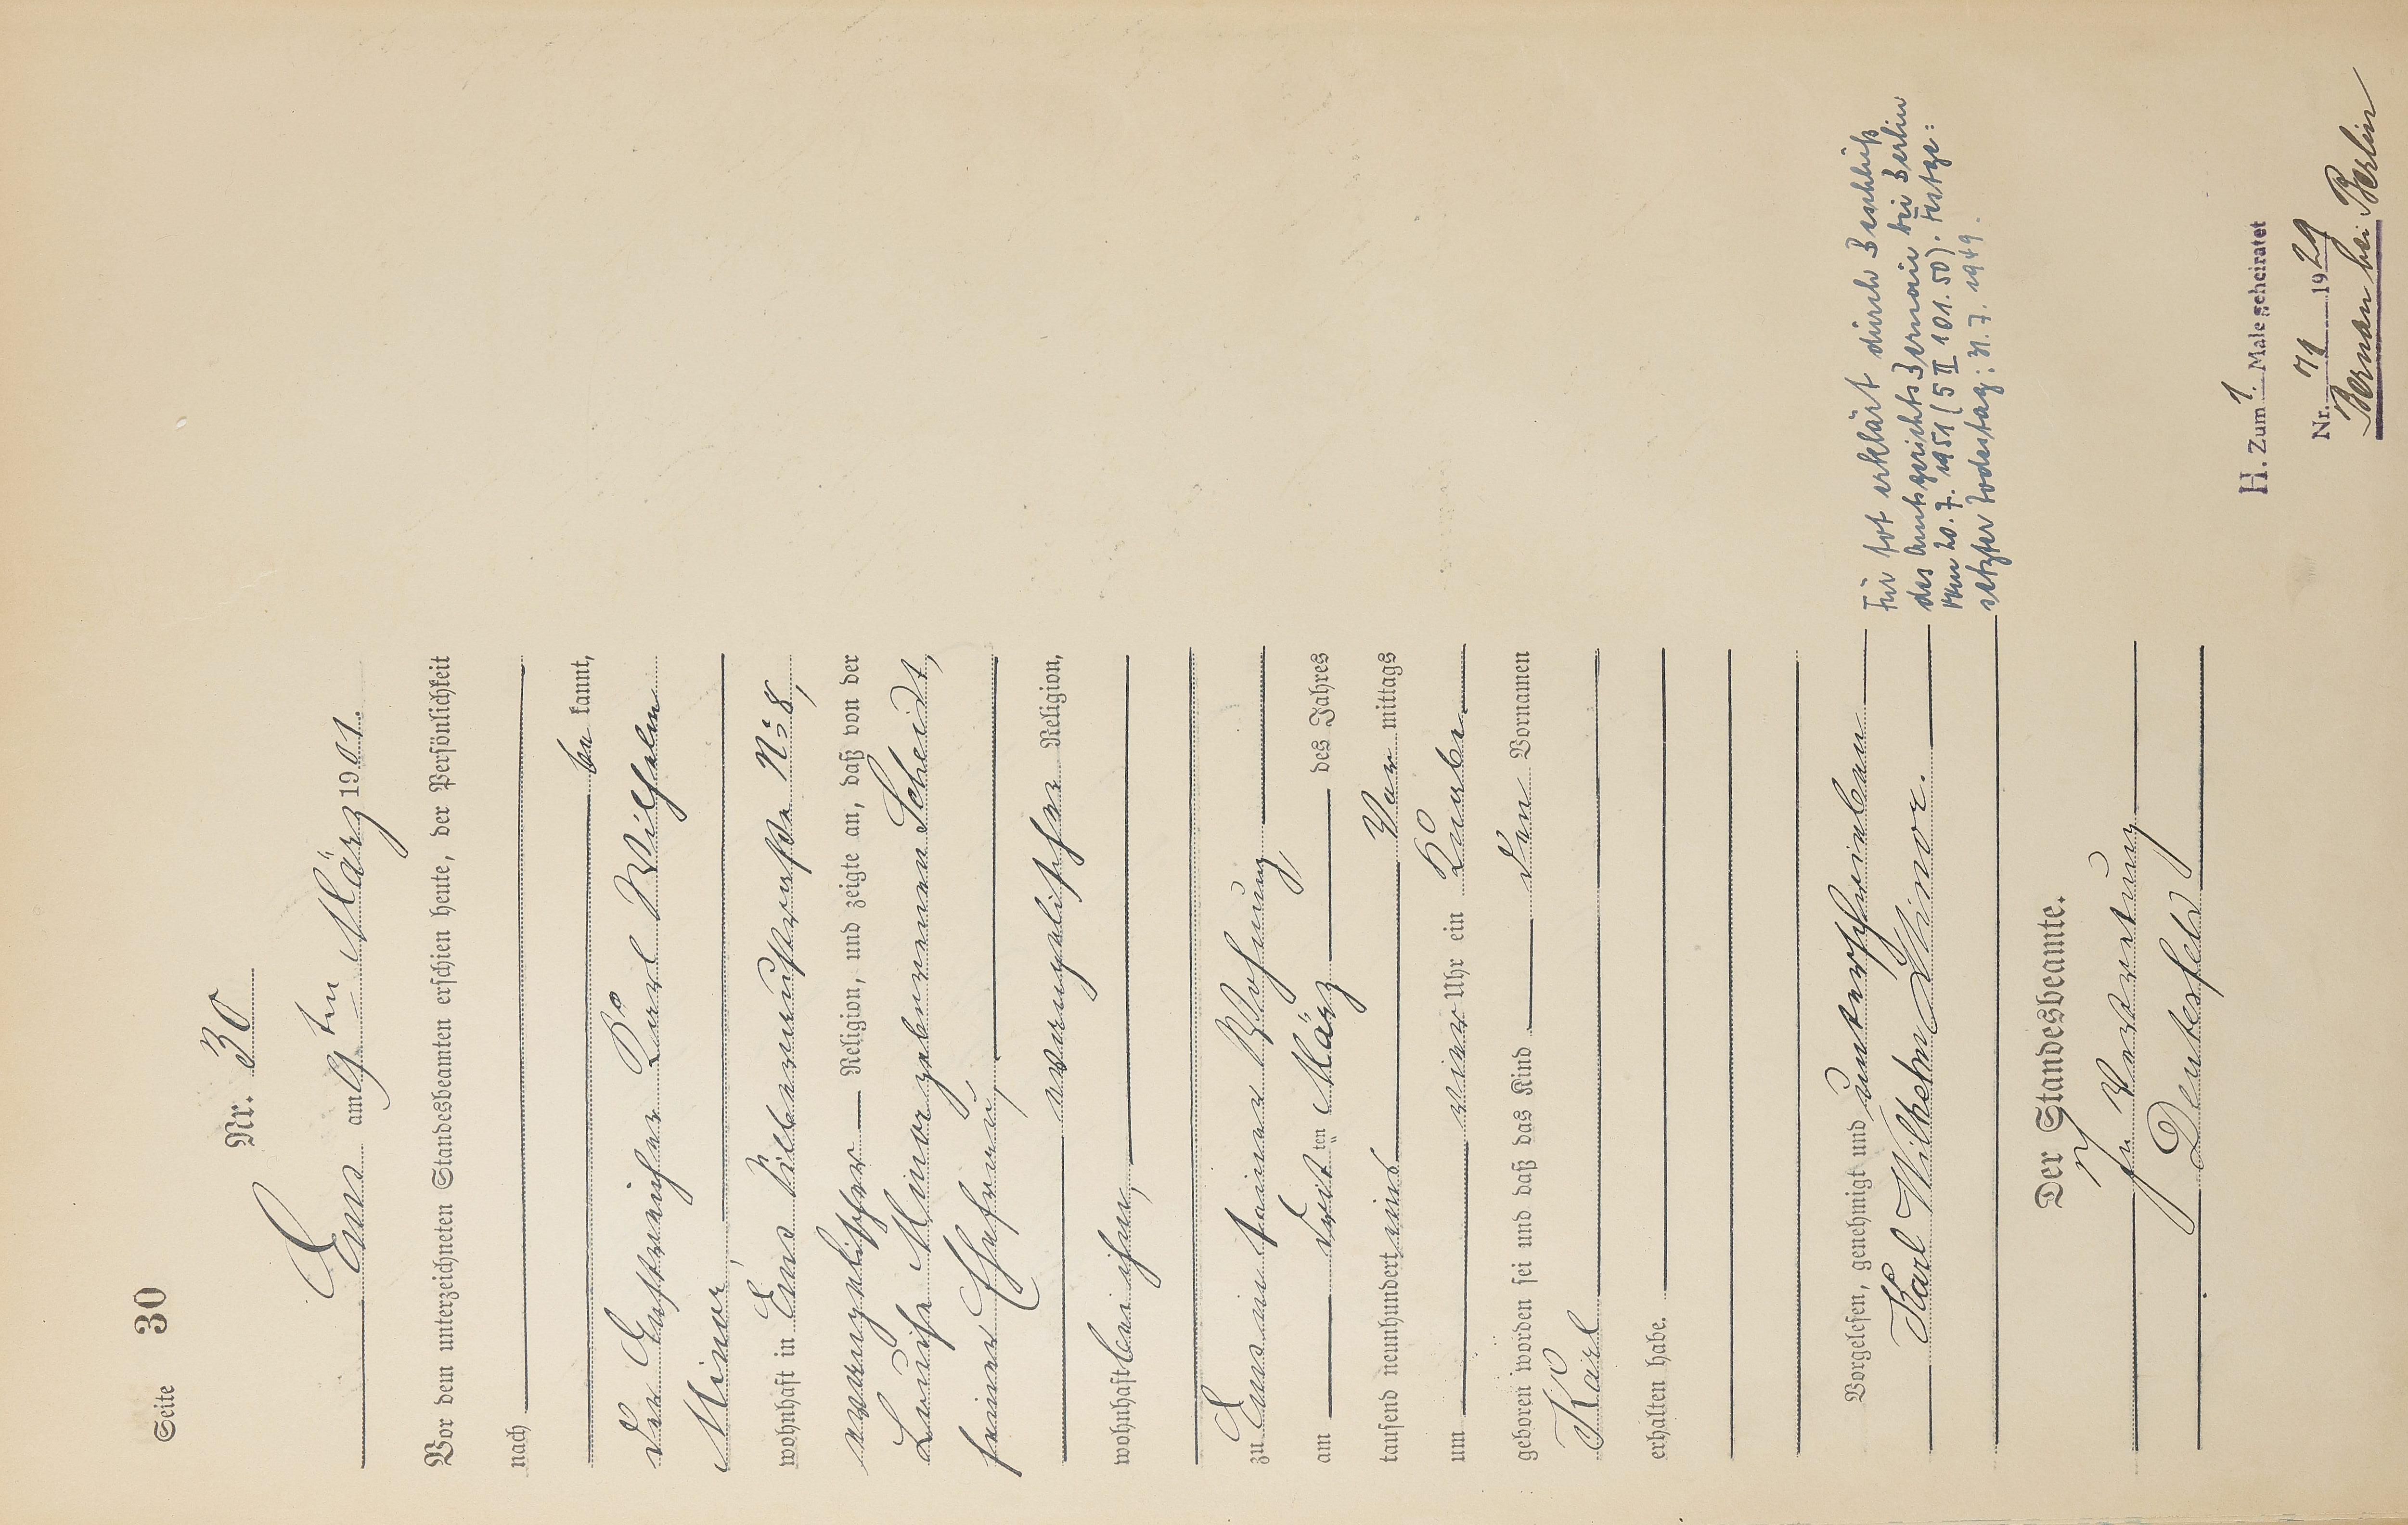 Seite 30
Nr. 30
Ems am 9ten März 1901.
Vor dem unterzeichneten Standesbeamten erschien heute, der Persönlichkeit
nach
be kannt,
der Anstreicher Karl Wilhelm
Minor,
wohnhaft in Ems Silberaustraße No 8,
evangelischer Religion, und zeigte an, daß von der
Louise Minor geborenen Scheidt,
seiner Ehefrau,
evangelischer Religion,
wohnhaft bei ihm,
zu Ems in seiner Wohnung
am dritten März des Jahres
tausend neunhundert eins Vor mittags
um vier Uhr ein Knabe
geboren worden sei und daß das Kind den Vornamen
Karl
erhalten habe.
Vorgelesen, genehmigt und unterschrieben
Karl Wilhelm Minor.
Der Standesbeamte.
In Vertretung
Deutesfeld
Für tot erklärt durch Beschluß
des Amtsgerichts Bernau bei Berlin
vom 20.7.1951 (5 II 101.50). Festge:
setzter Todestag: 31.7.1949.
H. Zum 1. Male geheiratet
Nr. 71 1929
Bernau bei Berlin